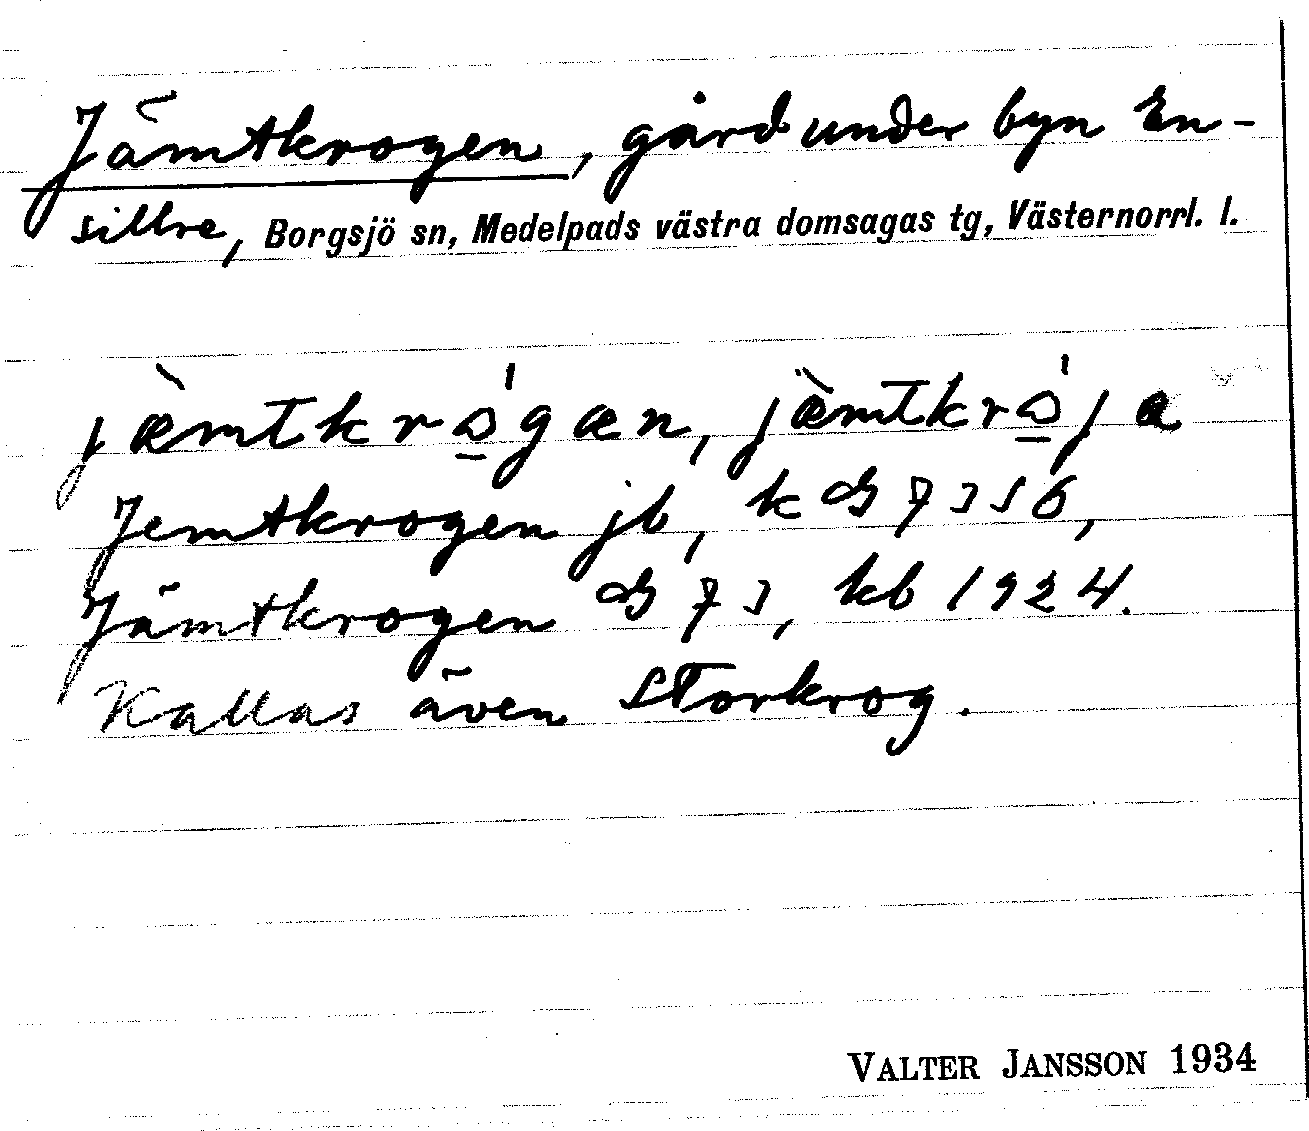 Jämtkrogen, gård under byn En-
sillre, Borgsjö sn, Medelpads västra domsagas tg, Västernorrl. l.
jæmtkrɷ̀gæn, jæmtkrɷ̀ja
Jemtkrogen jb, k
Jämtkrogen kb 1924.
Kallas även Storkrog.
VALTER JANSSON 1934